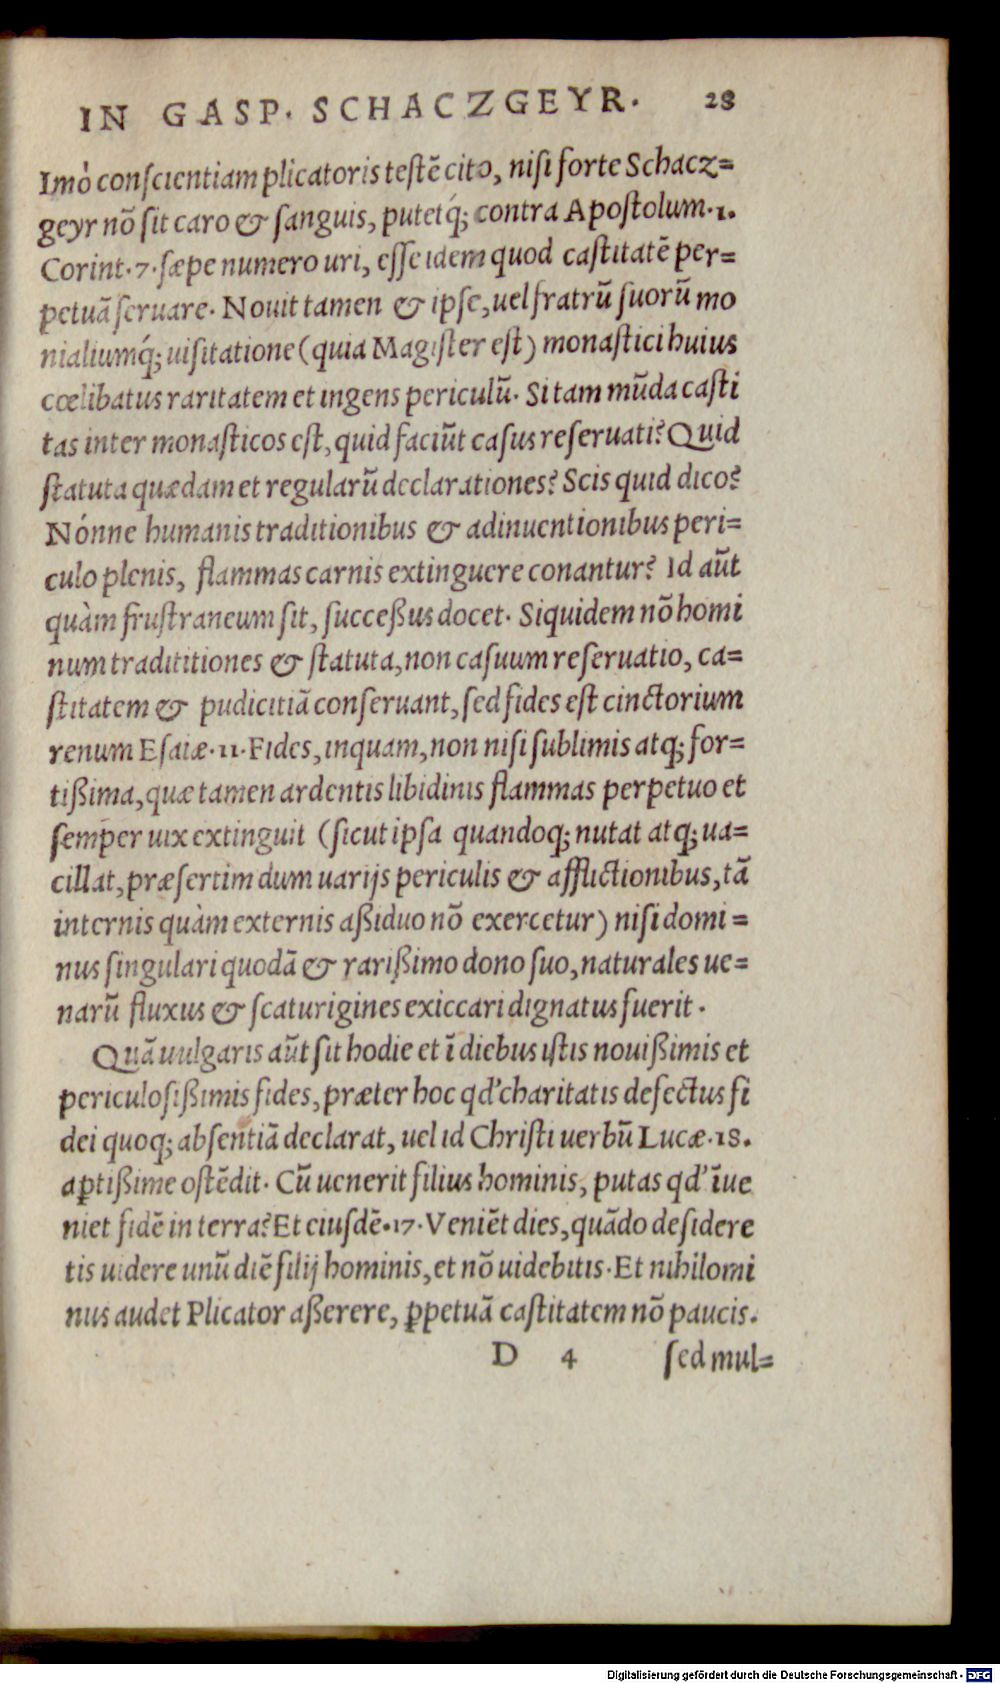 IN GASP. SCHACZGEYR. 28
Imò conſcientiam plicatoris teſtē cito, niſi forte Schacz=
geyr nō ſit caro & ſanguis, putetq́; contra Apoſtolum.1.
Corint.7.ſæpe numero uri, eſſe idem quod caſtitatē per=
petuā ſeruare. Nouit tamen & ipſe, uel fratrū ſuorū mo
nialiumq́; uiſitatione (quia Magiſter eſt) monaſtici huius
cœlibatus raritatem et ingens periculū. Si tam mūda caſti
tas inter monaſticos eſt, quid faciūt caſus reſeruati? Quid
ſtatuta quædam et regularū declarationes? Scis quid dico?
Nónne humanis traditionibus & adinuentionibus peri=
culo plenis, flammas carnis extinguere conantur? Id aūt
quàm fruſtraneum ſit, ſucceßus docet. Siquidem nō homi
num tradititiones & ſtatuta, non caſuum reſeruatio, ca=
ſtitatem & pudicitiā conſeruant, ſed fides eſt cinctorium
renum Eſaiæ.11.Fides, inquam, non niſi ſublimis atq; for=
tißima, quæ tamen ardentis libidinis flammas perpetuo et
ſemper uix extinguit (ſicut ipſa quandoq; nutat atq; ua=
cillat, præſertim dum uarijs periculis & afflictionibus, tā
internis quàm externis aßiduo nō exercetur) niſi domi=
nus ſingulari quodā & rarißimo dono ſuo, naturales ue=
narū fluxus & ſcaturigines exiccari dignatus fuerit.
Quā uulgaris aūt ſit hodie et ī diebus iſtis nouißimis et
periculoſißimis fides, præter hoc qd' charitatis defectus fi
dei quoq; abſentiā declarat, uel id Chriſti uerbū Lucæ.18.
aptißime oſtēdit. Cū uenerit filius hominis, putas qd' īue
niet fidē in terra? Et eiuſdē.17.Veniēt dies, quādo deſidere
tis uidere unū diē filij hominis, et nō uidebitis. Et nihilomi
nus audet Plicator aßerere, ꝑpetuā caſtitatem nō paucis.
D 4 ſed mul=
Digitalisierung gefördert durch die Deutsche Forschungsgemeinschaft - DFG